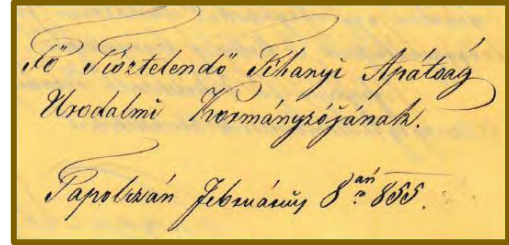 Fő Tisztelendő Tihanyi Apátság
Urodalmi Kormányzójának.
Tapolczán Február 8án 855.